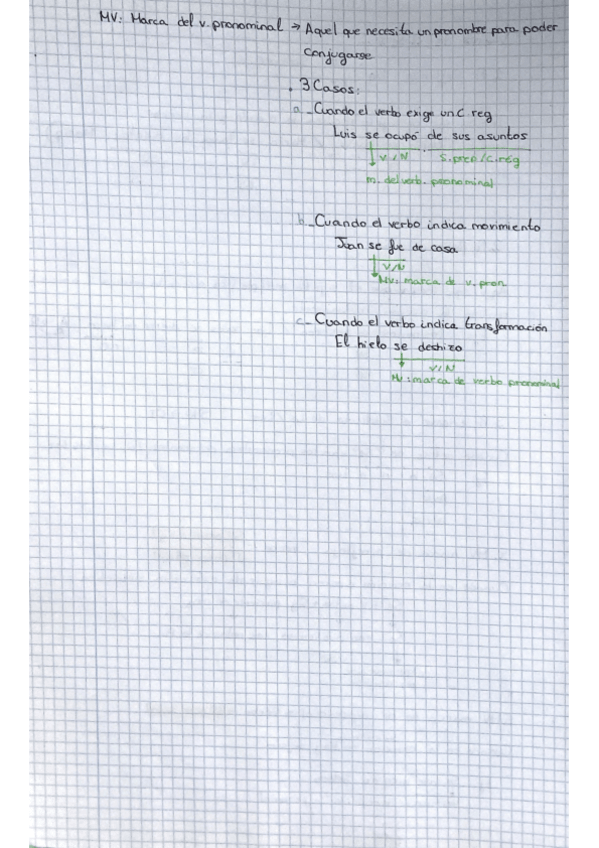 MV: Marca del v. pronominal → Aquel que necesita un pronombre para poder
conjugarse
. 3 Casos:
a_Cuando el verbo exige un C reg
Luis se ocupó de sus asuntos
V/N S.prep/C.rég
m. del verb. pronominal
b_Cuando el verbo indica movimiento
Juan se fue de casa
V/N
MV: marca de v. pron.
c_Cuando el verbo indica transformación
El hielo se deshizo
V/N
MV: marca de verbo pronominal